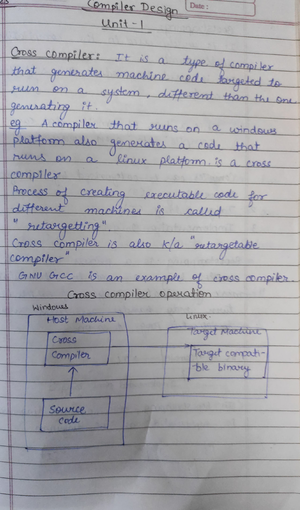 Compiler Design
Date :
Unit - 1
Cross compiler : It is a type of compiler
that generates machine code targeted to
run on a system, different than the one
generating it.
eg A compiler that runs on a windows
platform also generates a code that
runs on a linux platform is a cross
compiler
Process of creating executable code for
different machines is called
"retargetting"
Cross compiler is also k/a "retargetable
compiler"
GNU GCC is an example of cross compiler.
Cross compiler operation
Windows
Host Machine
Cross
Compiler
Source
code
Linux
Target Machine
Target compati-
ble binary